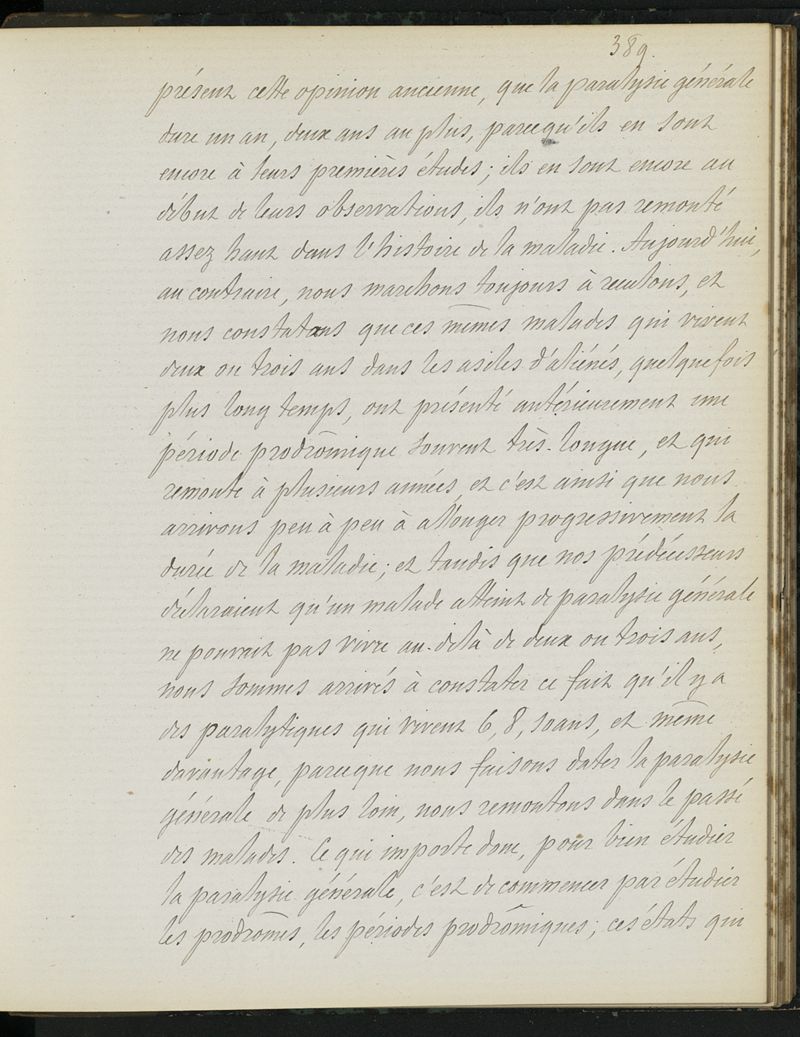 389.
présent cette opinion ancienne, que la paralysie générale
dure un an, deux ans au plus, parcequ'ils en sont
encore à leurs premières études; ils en sont encore au
début de leurs observations, ils n'ont pas remonté
assez haut dans l'histoire de la maladie. Aujourd'hui,
au contraire, nous marchons toujours à reculons, et
nous constatons que ces mêmes malades qui vivent
deux ou trois ans dans les asiles d'aliénés, quelquefois
plus long temps, ont présenté antérieurement une
période prodrômique souvent très-longue, et qui
remonte à plusieurs années, et c'est ainsi que nous
arrivons peu à peu à allonger progressivement la
durée de la maladie; et tandis que nos prédécesseurs
déclaraient qu'un malade atteint de paralysie générale
ne pouvait pas vivre au-delà de deux ou trois ans,
nous sommes arrivés à constater ce fait qu'il y a
des paralytiques qui vivent 6, 8, 10 ans, et même
davantage, parceque nous faisons dater la paralysie
générale de plus loin, nous remontons dans le passé
des malades. Ce qui importe donc, pour bien étudier
la paralysie générale, c'est de commencer par étudier
les prodrômes, les périodes prodrômiques; ces états qui